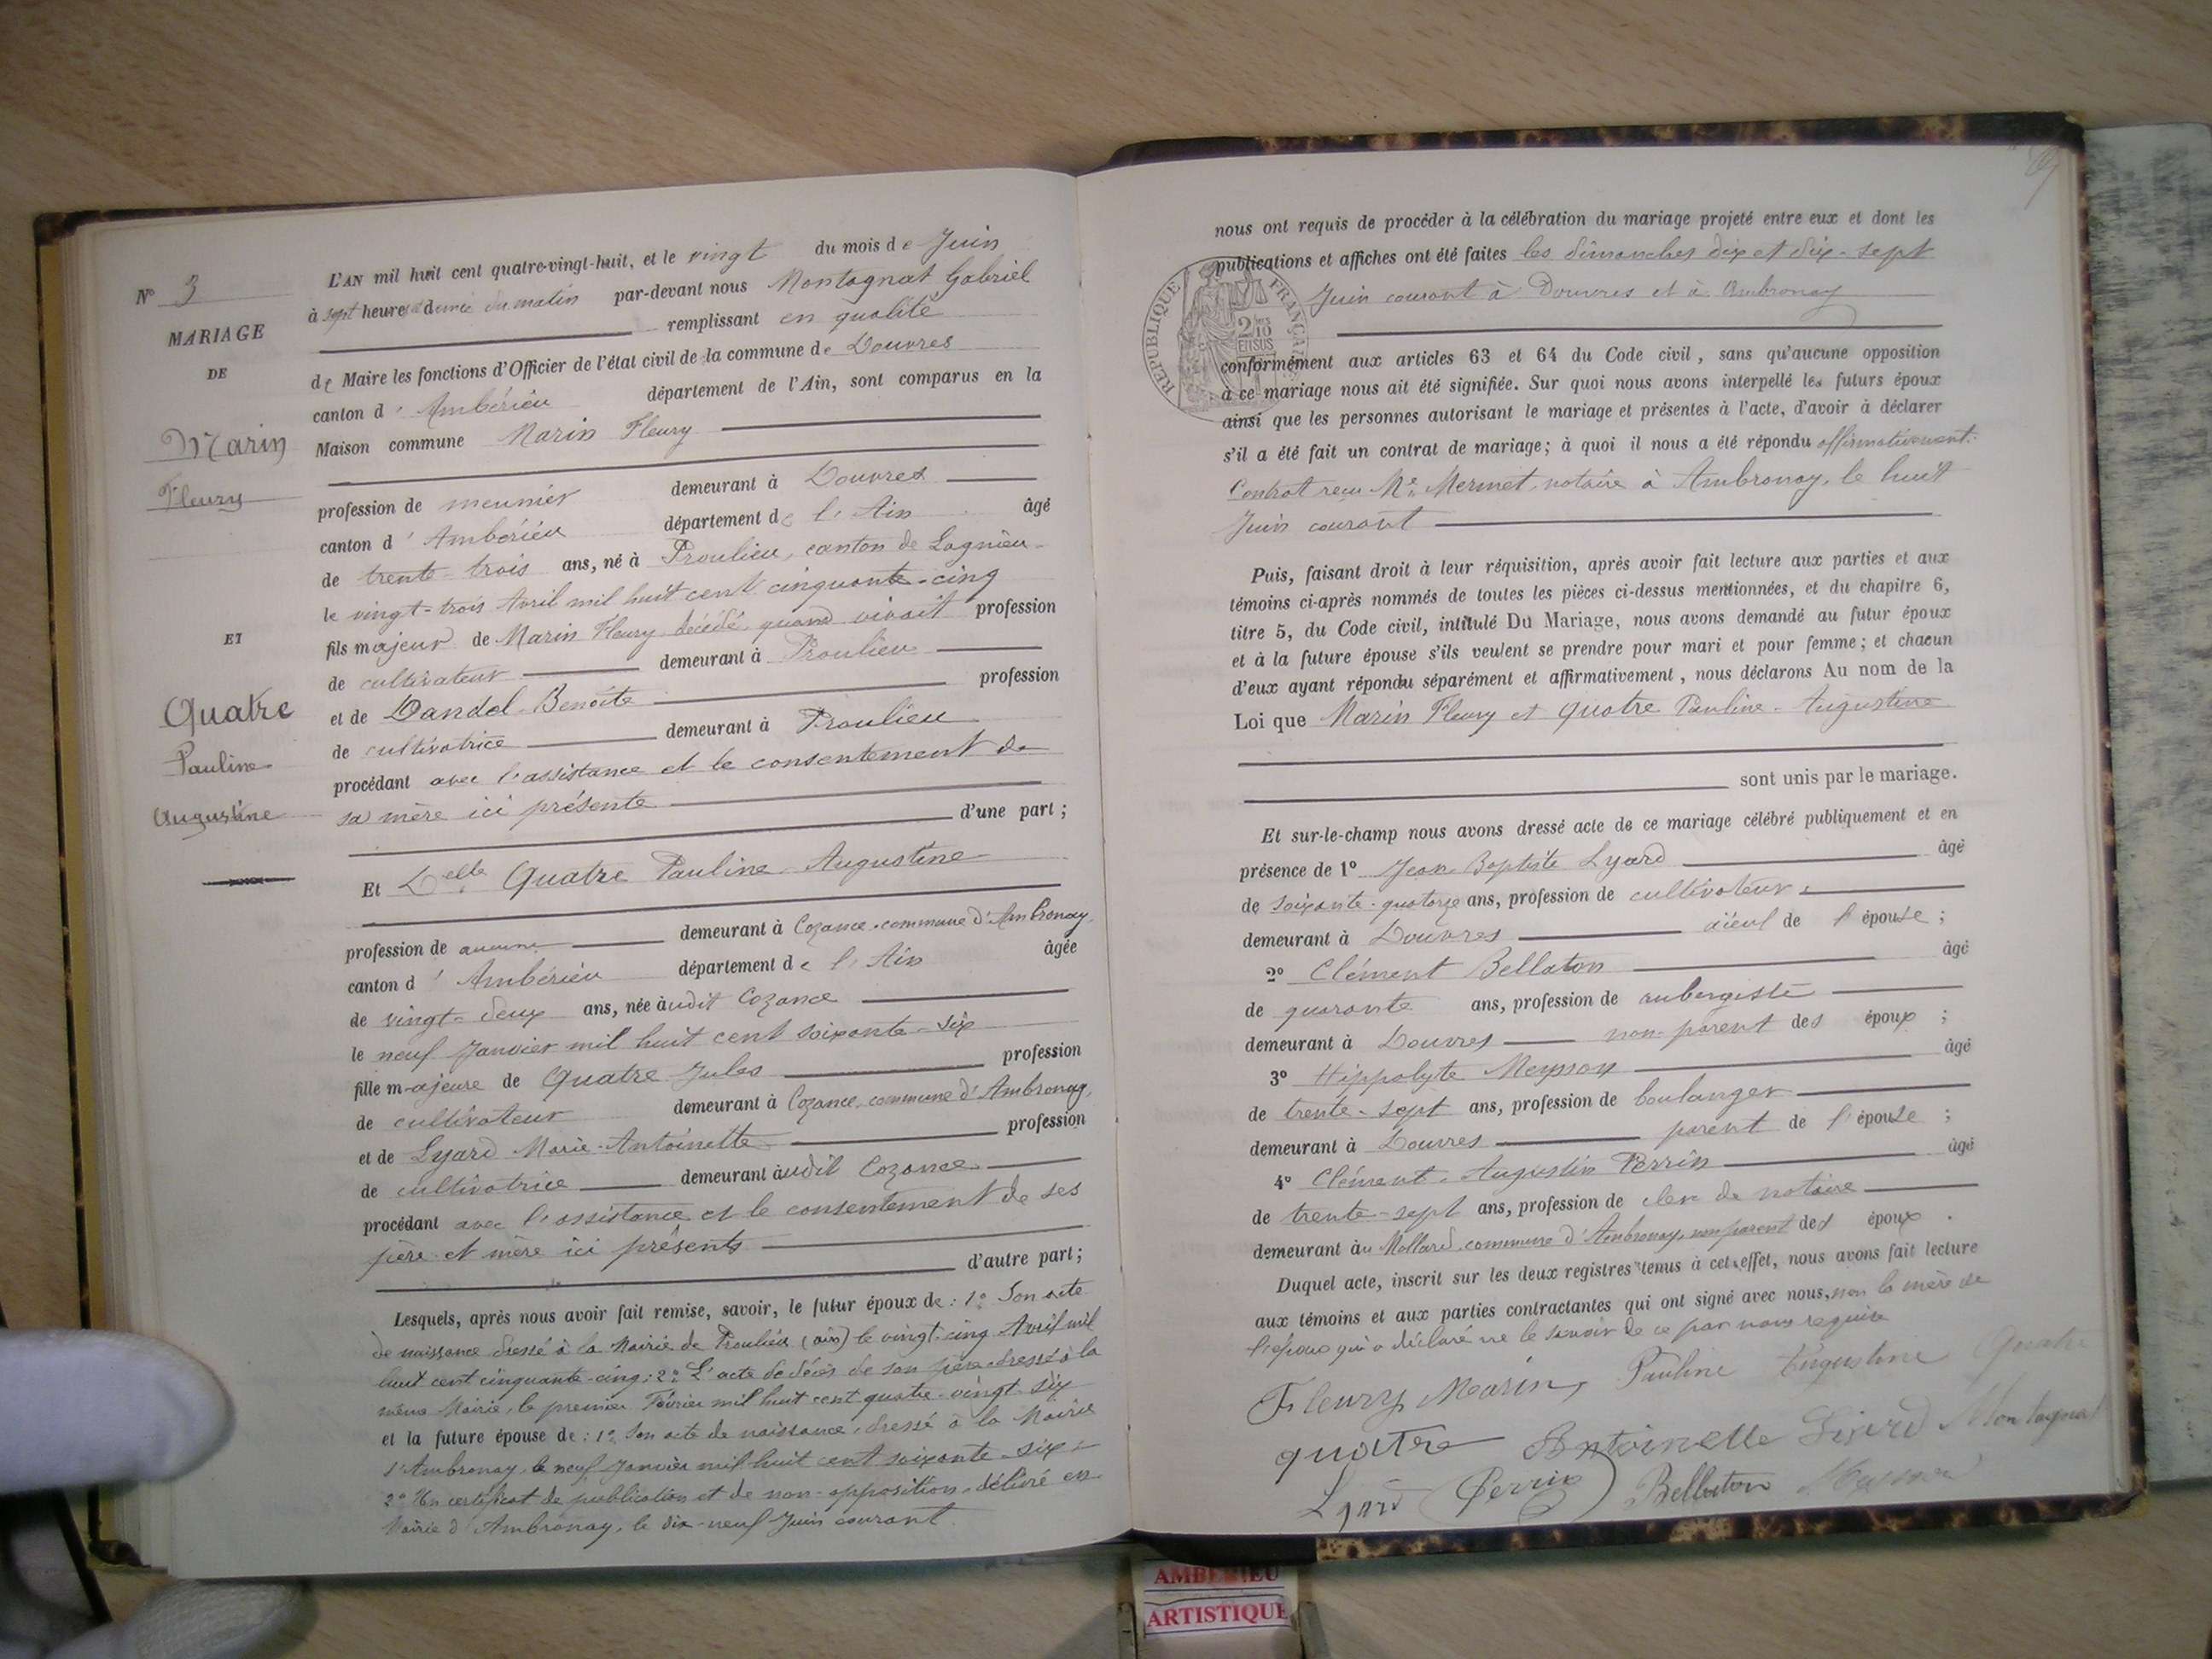 N° 3
MARIAGE
DE
Marin
Fleury
ET
Quatre
Pauline
Augustine
L'AN mil huit cent quatre-vingt-huit, et le vingt du mois de Juin
à sept heures et demie du matin par-devant nous Montagnat Gabriel
remplissant en qualité
de Maire les fonctions d'Officier de l'état civil de la commune de Douvres
canton d'Ambérieu département de l'Ain, sont comparus en la
Maison commune Marin Fleury
profession de meunier demeurant à Douvres
canton d'Ambérieu département de l'Ain âgé
de trente-trois ans, né à Proulieu, canton de Lagnieu
le vingt-trois Avril mil huit cent cinquante-cinq
fils majeur de Marin Fleury décédé, quand vivait profession
de cultivateur demeurant à Proulieu
et de Dandel Benoîte profession
de cultivatrice demeurant à Proulieu
procédant avec l'assistance et le consentement de
sa mère ici présente
d'une part;
Et Delle Quatre Pauline Augustine
profession de aucune demeurant à Cozance, commune d'Ambronay,
canton d'Ambérieu département de l'Ain âgée
de vingt-deux ans, née àudit Cozance
le neuf Janvier mil huit cent soixante-six
fille majeure de Quatre Jules profession
de cultivateur demeurant à Cozance, commune d'Ambronay,
et de Lyard Marie-Antoinette profession
de cultivatrice demeurant àudit Cozance
procédant avec l'assistance et le consentement de ses
père et mère ici présents
d'autre part;
Lesquels, après nous avoir fait remise, savoir, le futur époux de: 1° Son acte
de naissance dressé à la Mairie de Proulieu (Ain) le vingt-cinq Avril mil
huit cent cinquante-cinq; 2° L'acte de décès de son père dressé à la
même Mairie, le premier Février mil huit cent quatre-vingt-six
et la future épouse de: 1° Son acte de naissance, dressé à la Mairie
d'Ambronay, le neuf Janvier mil huit cent soixante-six;
2° Un certificat de publication et de non-opposition, délivré en
Mairie d'Ambronay, le dix-neuf Juin courant
nous ont requis de procéder à la célébration du mariage projeté entre eux et dont les
publications et affiches ont été faites les dimanches dix et dix-sept
Juin courant à Douvres et à Ambronay
RÉPUBLIQUE FRANÇAISE
2/10 EN SUS
conformément aux articles 63 et 64 du Code civil, sans qu'aucune opposition
à ce mariage nous ait été signifiée. Sur quoi nous avons interpellé les futurs époux
ainsi que les personnes autorisant le mariage et présentes à l'acte, d'avoir à déclarer
s'il a été fait un contrat de mariage; à quoi il nous a été répondu affirmativement:
Contrat reçu Me. Mermet, notaire à Ambronay, le huit
Juin courant
Puis, faisant droit à leur réquisition, après avoir fait lecture aux parties et aux
témoins ci-après nommés de toutes les pièces ci-dessus mentionnées, et du chapitre 6,
titre 5, du Code civil, intitulé Du Mariage, nous avons demandé au futur époux
et à la future épouse s'ils veulent se prendre pour mari et pour femme; et chacun
d'eux ayant répondu séparément et affirmativement, nous déclarons Au nom de la
Loi que Marin Fleury et Quatre Pauline-Augustine
sont unis par le mariage.
Et sur-le-champ nous avons dressé acte de ce mariage célébré publiquement et en
présence de 1° Jean-Baptiste Lyard âgé
de soixante-quatorze ans, profession de cultivateur,
demeurant à Douvres aïeul de l'épouse;
2° Clément Bellaton âgé
de quarante ans, profession de aubergiste
demeurant à Douvres non-parent des époux;
3° Hippolyte Meysson âgé
de trente-sept ans, profession de boulanger
demeurant à Douvres parent de l'épouse;
4° Clément-Augustin Perrin âgé
de trente-sept ans, profession de clerc de notaire
demeurant àu Mollard, commune d'Ambronay, non parent des époux.
Duquel acte, inscrit sur les deux registres tenus à cet effet, nous avons fait lecture
aux témoins et aux parties contractantes qui ont signé avec nous, non la mère de
l'époux qui a déclaré ne le savoir de ce par nous requise
Fleury Marin, Pauline Augustine Quatre
quatre Antoinette Liard Montagnat
Lyard Perrin Bellaton Meysson
AMBERIEU
ARTISTIQUE